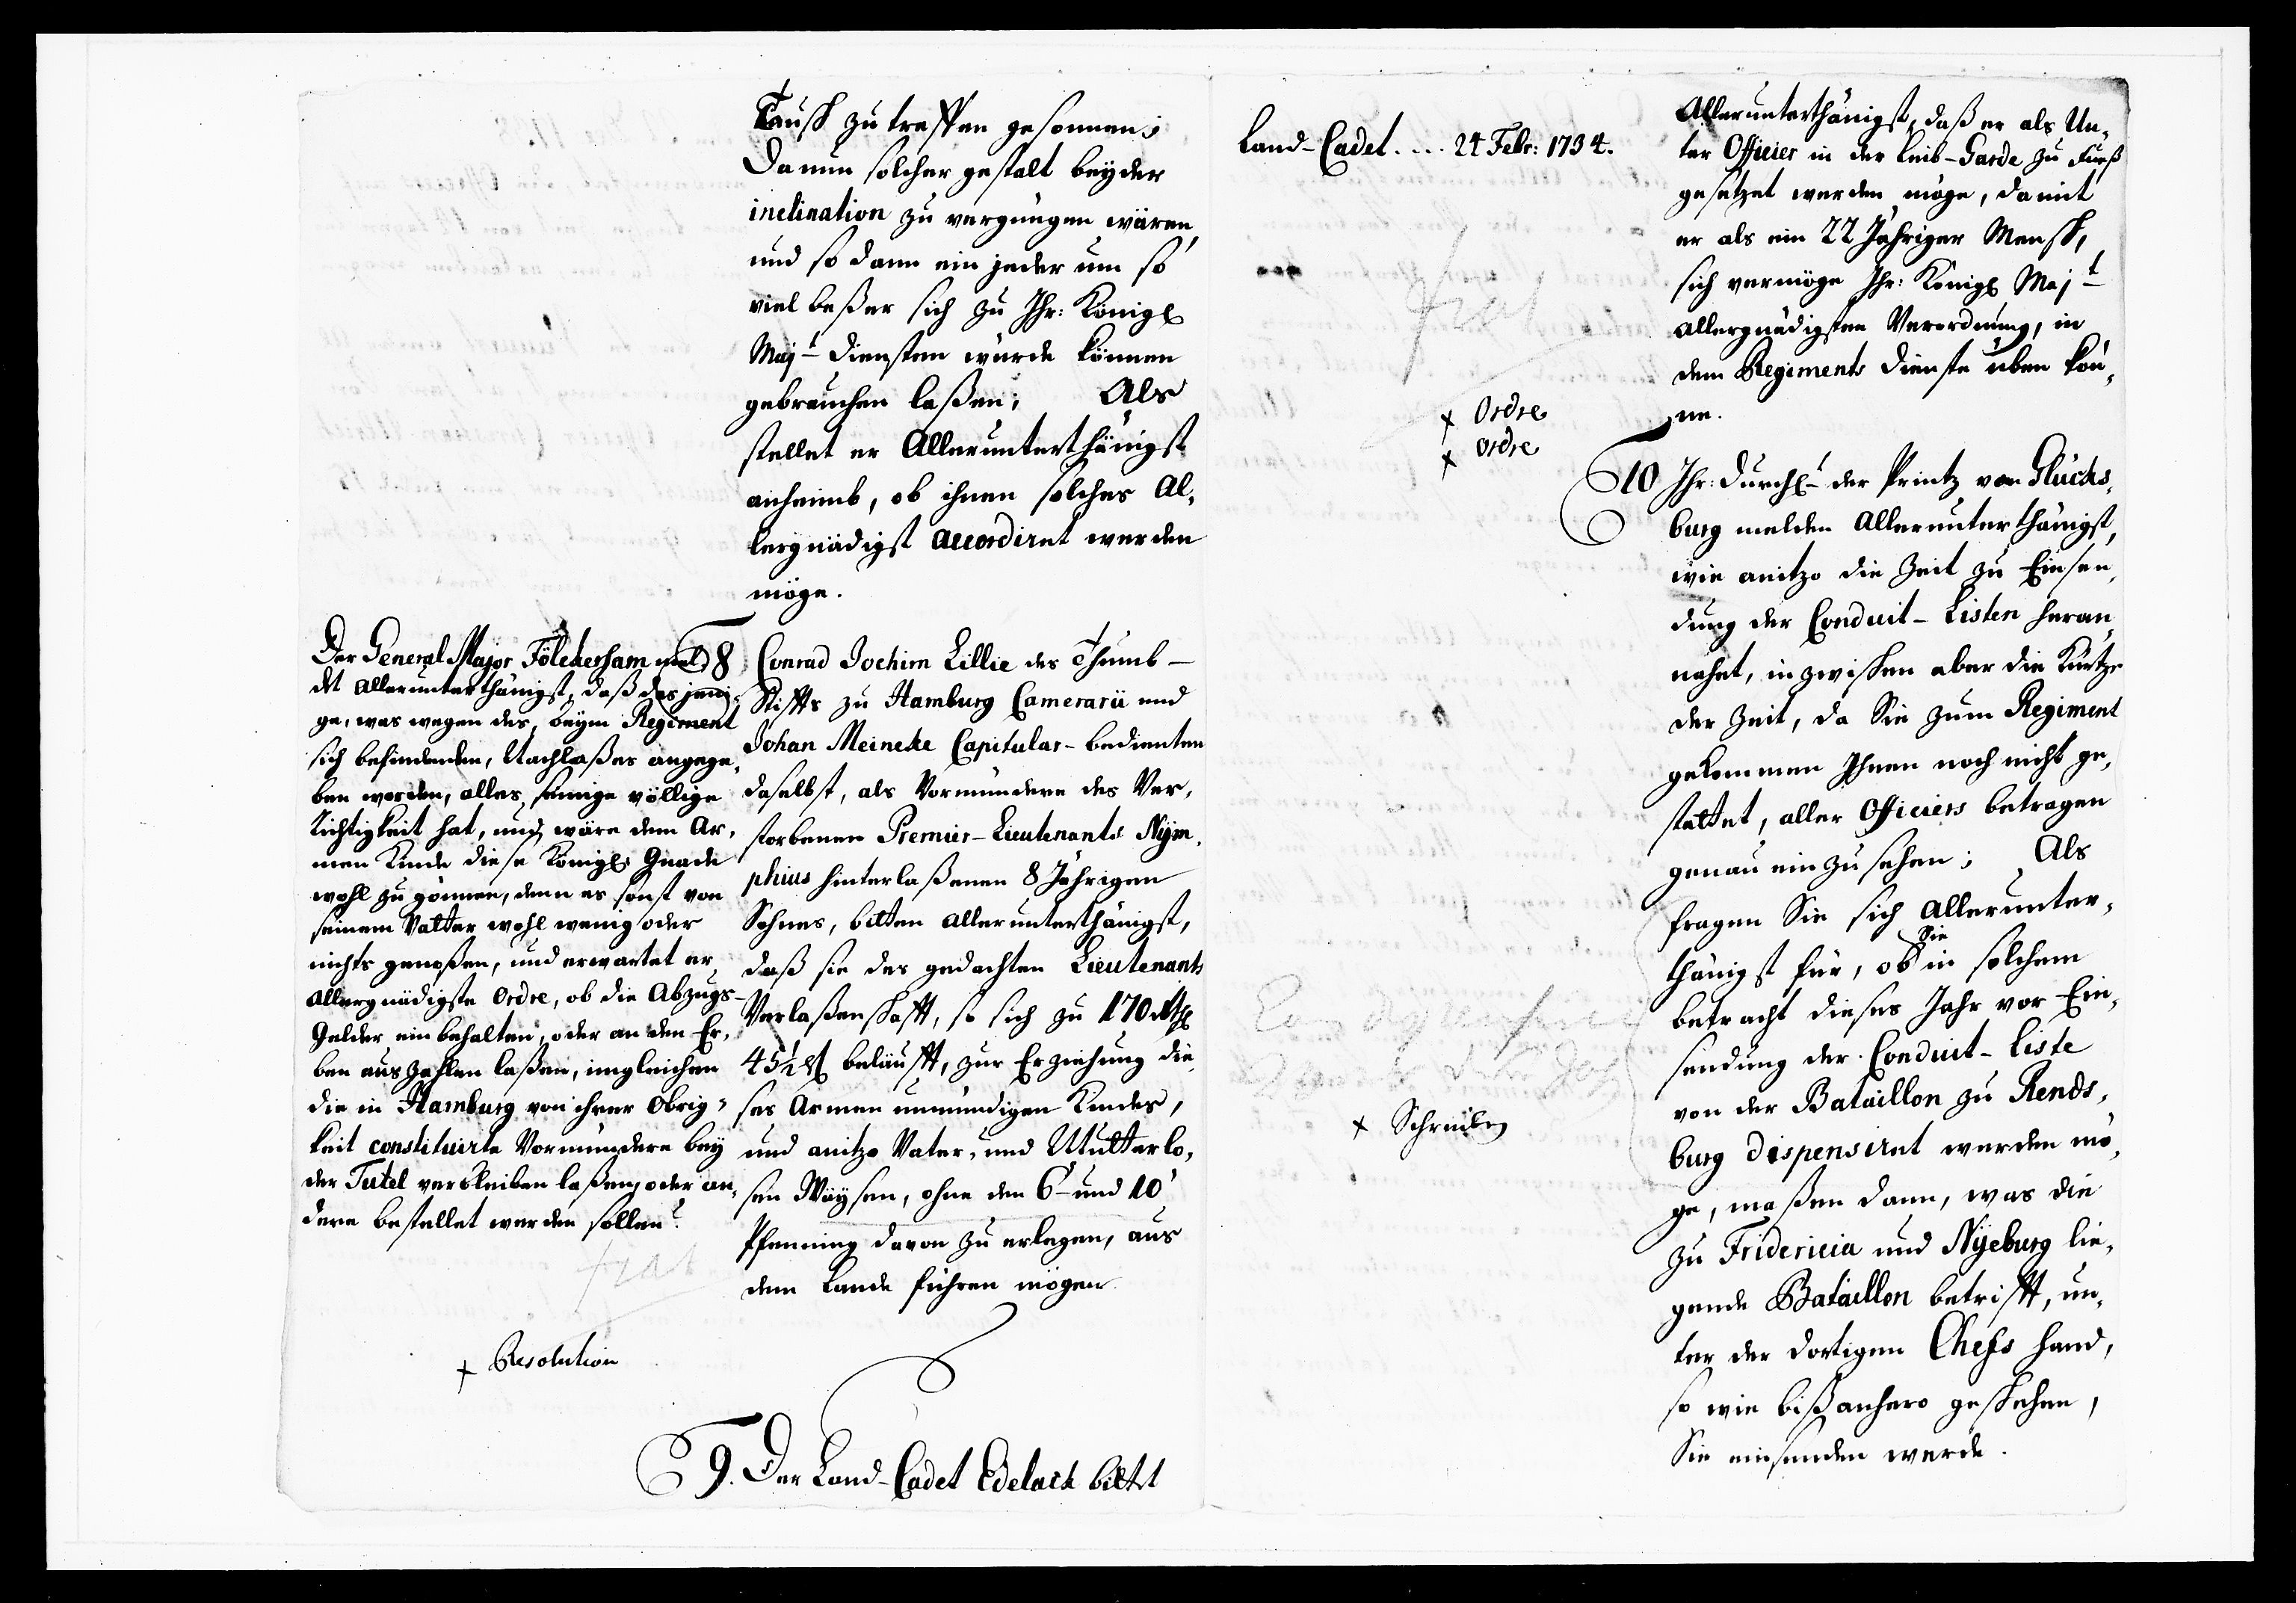 Tausch zu treffen gesonnen;
Da nun solcher gestalt beyder
inclination zu vergnügen wären,
und so dann ein jeder um so
viel beßer sich zu Ihr: Königl
Majt Diensten würde können
gebrauchen laßen; Als
stellet er Allerunterthänigst
anheimb, ob ihnen solches Al-
lergnädigst accordiret werden
möge.
Der General Major Fölckersham mel-
det allerunterthänigst, daß dasjeni-
ge, was wegen des, beym Regiment
sich befindenden, Nachlaßes angege-
ben worden, alles seinige völlige
Richtigkeit hat, und wäre dem Ar-
men Kinde diese Königl: Gnade
wohl zu gönnen, denn es sonst von
seinem Vatter wohl wenig oder
nichts genoßen, und erwartet er
Allergnädigste Ordre, ob die Abzugs-
Gelder einbehalten, oder an den Er-
ben auszahlen laßen, imgleichen
die in Hamburg von ihrer Obrig-
keit constituirte Vormündere bey
der Tutel verbleiben laßen, oder an-
dere bestellet werden sollen?
frat
+ Resolution
8 Conrad Jochim Lillie des Thumb-
Stiffts zu Hamburg Camerarii und
Johan Meineke Capitular-bedienten
daselbst, als Vormündere des Ver-
storbenen Premier-Lieutenants Nÿm-
phius hinterlaßenen 8 Jährigen
Sohnes, bitten allerunterthänigst,
daß sie des gedachten Lieutenants
Verlaßenschafft, so sich zu 170 Rthl
45½ ß beläufft, zur Erziehung die-
ses Armen unmündigen Kindes,
und anitzo Vater- und Mutterlo-
sen Waÿsen, ohne den 6t und 10t
Pfenning davon zu erlegen, aus
dem Lande führen mögen.
9. Der Land-Cadet Edelack bittet
Land-Cadet.... 24 Febr: 1734.
Allerunterthänigst, daß er als Un-
ter Officier in der Leib-Garde zu Fueß
gesetzet werden möge, damit
er als ein 22 Jähriger Mensch,
sich vermöge Ihr: Königl Majt
allergnädigsten Verordnung, in
dem Regiments Dienste üben kön-
ne.
frat
+ Ordre
+ Ordre
10 Ihr: Durchlt der Printz von Glücks-
burg melden Allerunterthänigst,
wie anitzo die Zeit zu Einsen-
dung der Conduit-Listen heran
nahet, inzwischen aber die Kürtze
der Zeit, da Sie zum Regiment
gekommen Ihnen noch nicht ge-
stattet, aller Officiers betragen
genau einzusehen; Als
fragen Sie sich Allerunter-
thänigst für, ob Sie in solchem
betracht dieses Jahr vor Ein-
sendung der Conduit-Liste
von der Bataillon zu Rends-
burg dispensiret werden mö-
ge, maßen dann, was die
zu Fridericia und Nÿeburg lie-
gende Bataillon betrifft, un-
ter der dortigen Chefs Hand,
so wie bißanhero geschehen,
Sie einsenden werde.
+ Schreiben